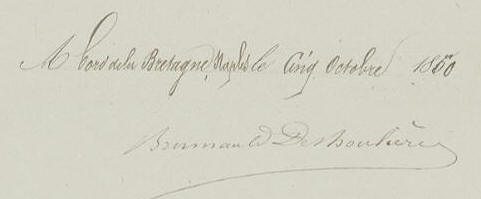 A bord de la Bretagne, Naples le Cinq Octobre 1860